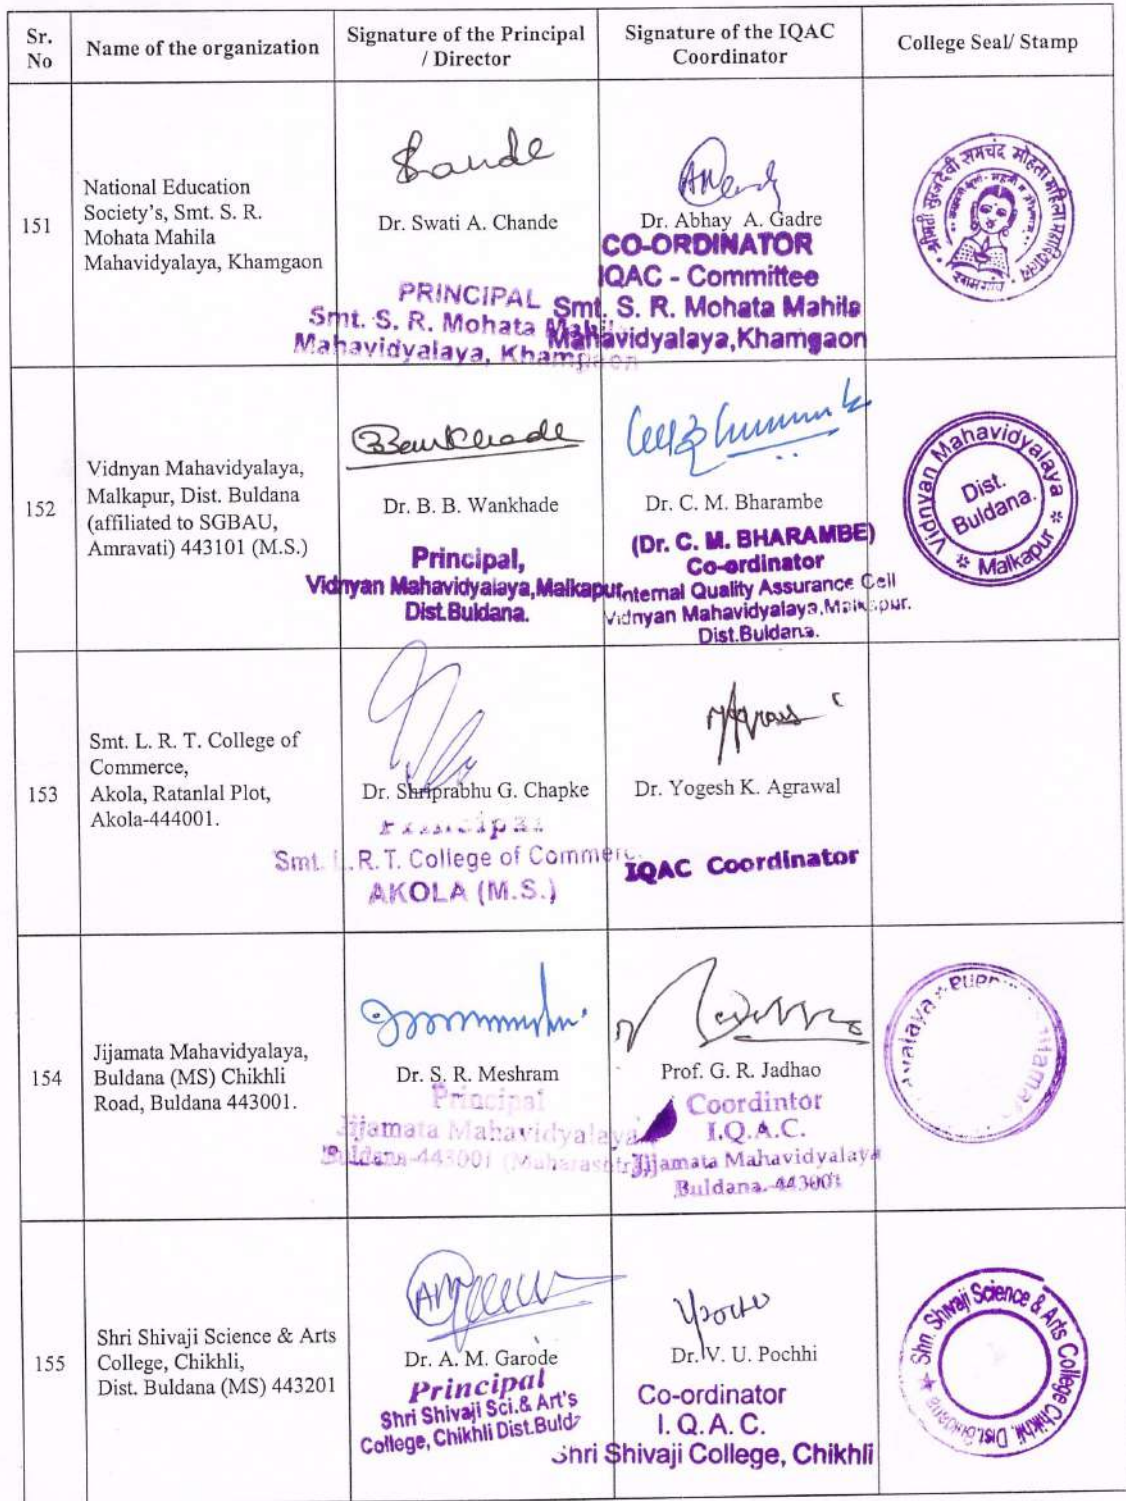 Sr. No
Name of the organization
Signature of the Principal / Director
Signature of the IQAC Coordinator
College Seal/ Stamp
151
National Education
Society's, Smt. S. R.
Mohata Mahila
Mahavidyalaya, Khamgaon
Chande
Dr. Swati A. Chande
PRINCIPAL
Smt. S. R. Mohata Mahila
Mahavidyalaya, Khamgaon
Dr. Abhay A. Gadre
CO-ORDINATOR
IQAC - Committee
Smt. S. R. Mohata Mahila
Mahavidyalaya,Khamgaon
श्रीमती सुरजदेवी रामचंद मोहता महिला महाविद्यालय
खामगांव
152
Vidnyan Mahavidyalaya,
Malkapur, Dist. Buldana
(affiliated to SGBAU,
Amravati) 443101 (M.S.)
Dr. B. B. Wankhade
Principal,
Vidnyan Mahavidyalaya,Malkapur
Dist.Buldana.
Dr. C. M. Bharambe
(Dr. C. M. BHARAMBE)
Co-ordinator
Internal Quality Assurance Cell
Vidnyan Mahavidyalaya,Malkapur.
Dist.Buldana.
Vidnyan Mahavidyalaya
Dist.
Buldana.
* Malkapur *
153
Smt. L. R. T. College of
Commerce,
Akola, Ratanlal Plot,
Akola-444001.
Dr. Shriprabhu G. Chapke
Principal
Smt. L.R.T. College of Commerce
AKOLA (M.S.)
Dr. Yogesh K. Agrawal
IQAC Coordinator
154
Jijamata Mahavidyalaya,
Buldana (MS) Chikhli
Road, Buldana 443001.
Dr. S. R. Meshram
Principal
Jijamata Mahavidyalaya
Buldana-443001 (Maharashtra)
Prof. G. R. Jadhao
Coordintor
I.Q.A.C.
Jijamata Mahavidyalaya
Buldana.-443001
155
Shri Shivaji Science & Arts
College, Chikhli,
Dist. Buldana (MS) 443201
Dr. A. M. Garode
Principal
Shri Shivaji Sci.& Art's
College, Chikhli Dist.Buld
Dr. V. U. Pochhi
Co-ordinator
I. Q. A. C.
Shri Shivaji College, Chikhli
Shri. Shivaji Science & Arts College Chikhli, Dist.Buldana